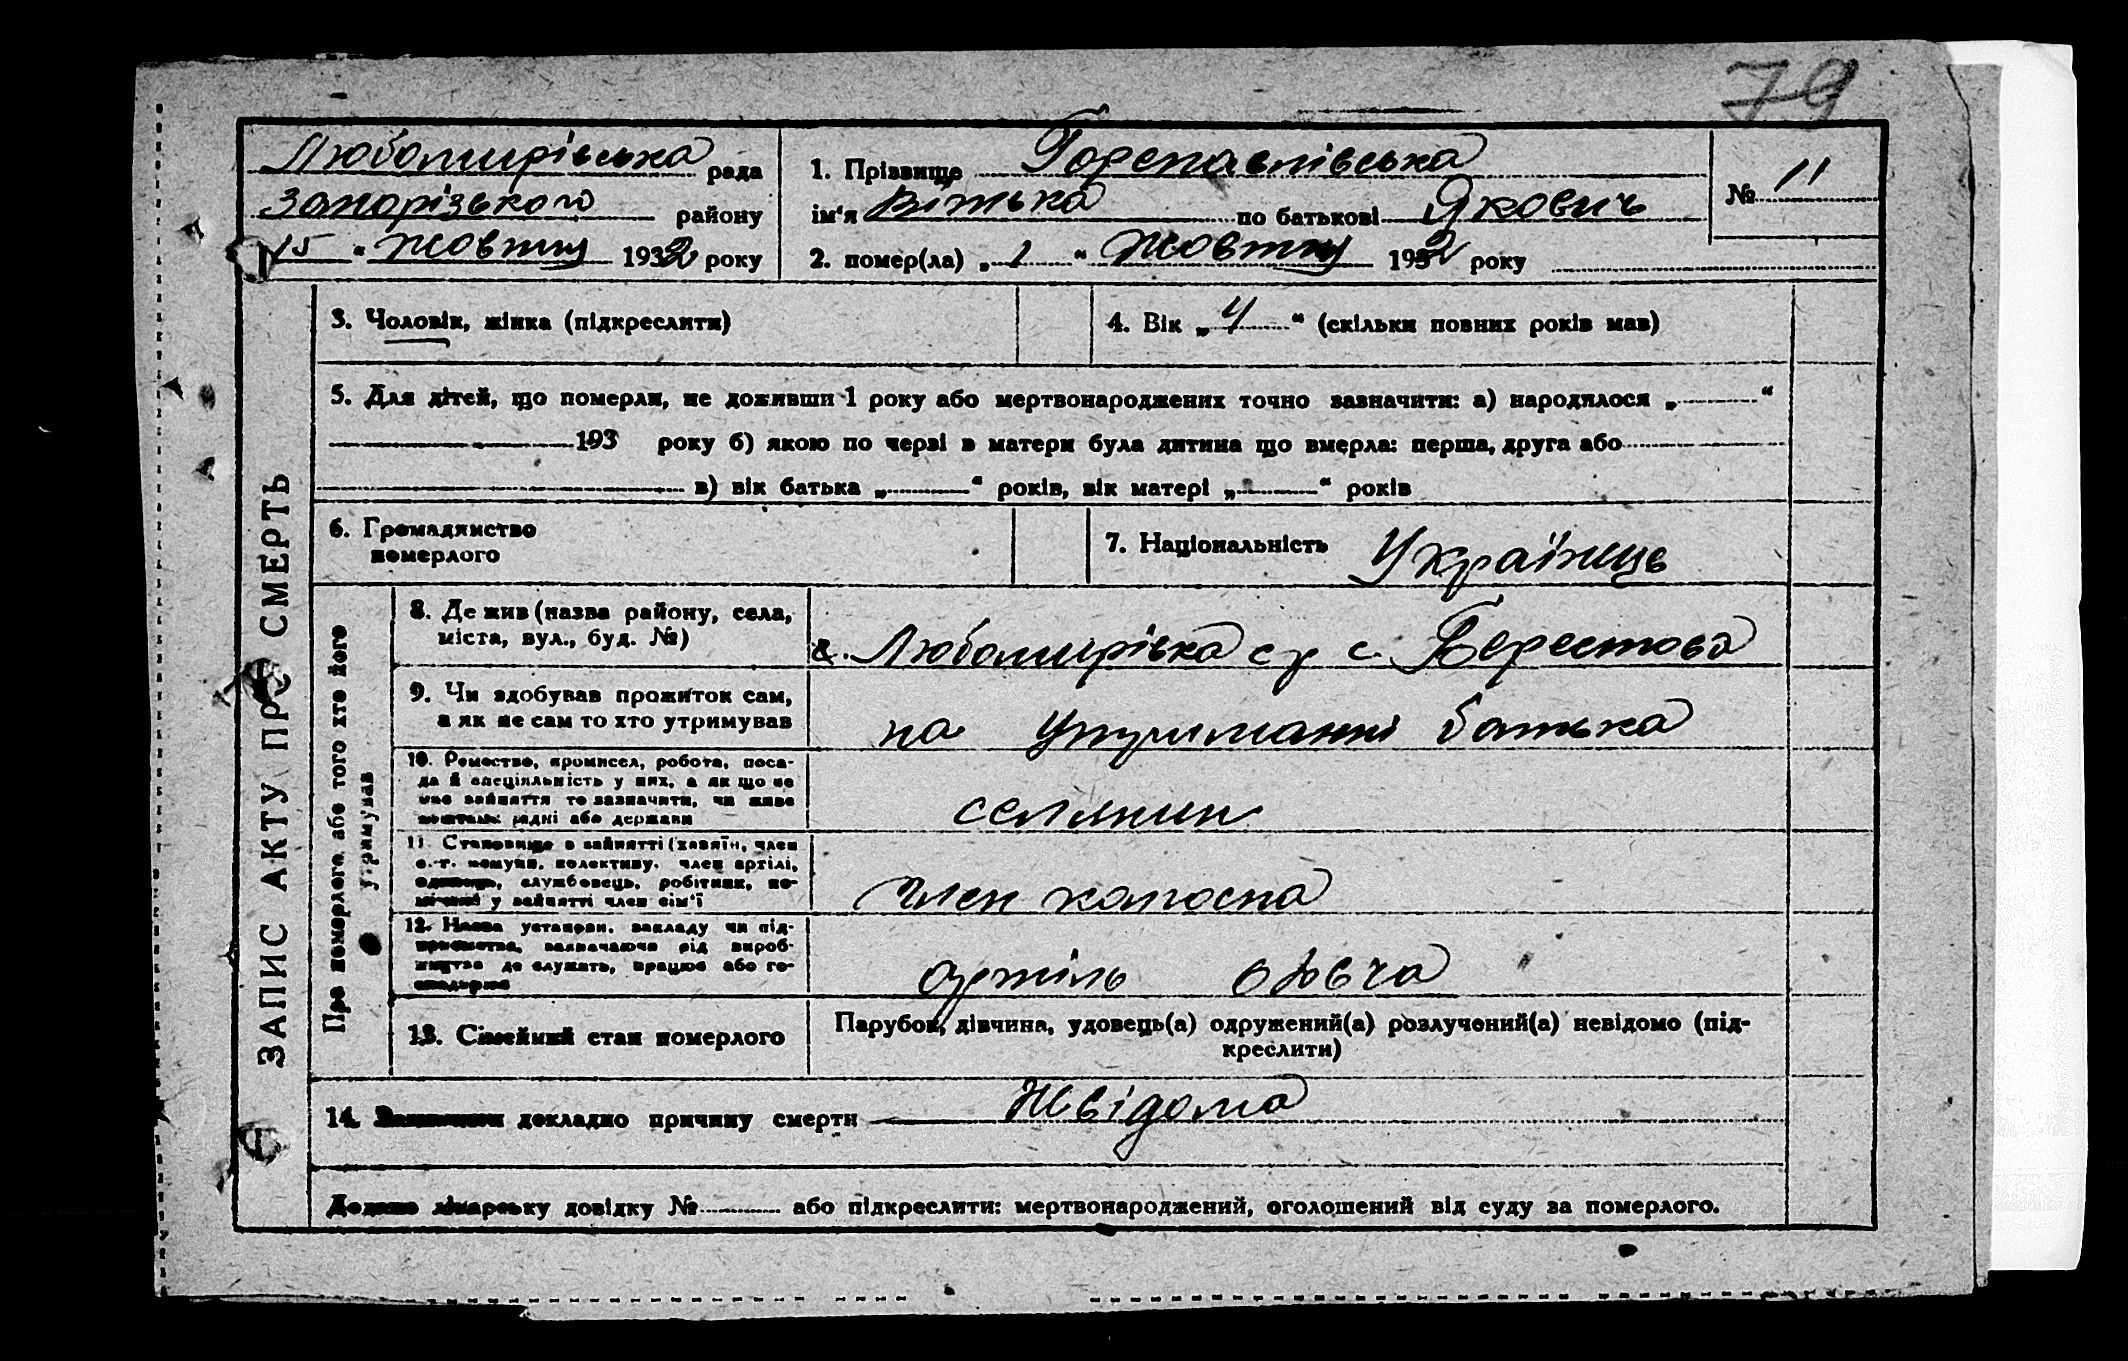 79
Любомирівська рада
Запорізького району
"15" жовтня 1932 року
1. Прізвище Горепавлівська
ім'я Вітька по батькові Якович
№ 11
2. помер(ла) „1" жовтня 1932 року
3. Чоловік, жінка (підкреслити)
4. Вік „4" (скільки повних років мав)
5. Для дітей, що померли, не доживши 1 року або мертвонароджених точно зазначити: а) народилося „ "
193 року б) якою по черзі в матери була дитина що вмерла: перша, друга або
в) вік батька „ " років, вік матері „ " років
6. Громадянство
померлого
7. Національність Українець
ЗАПИС АКТУ ПРО СМЕРТЬ
Про померлого або того хто його
утримував
8. Де жив (назва району, села,
міста, вул., буд. №)
Любомирівка с р с. Берестова
9. Чи здобував прожиток сам,
а як не сам то хто утримував
на утриманні батька
10. Ремество, промисел, робота, поса-
да й спеціяльність у них, а як що не
має зайняття то зазначити, чи живе
коштами рідні або держави
селянин
11. Становище в зайнятті (хазяїн, член
с.-г. комуни, колективу, член артілі,
одинець, службовець, робітник, по-
мічний у зайнятті член сім'ї
член колгоспа
12. Назва установи, закладу чи під-
приємства, зазначаючи рід вироб-
ництва де служить, працює або го-
сподарює
артіль
13. Сімейний стан померлого
Парубок, дівчина, удовець(а) одружений(а) розлучений(а) невідомо (під-
креслити)
14. Зазначити докладно причину смерти Невідома
Додано лікарську довідку № або підкреслити: мертвонароджений, оголошений від суду за померлого.